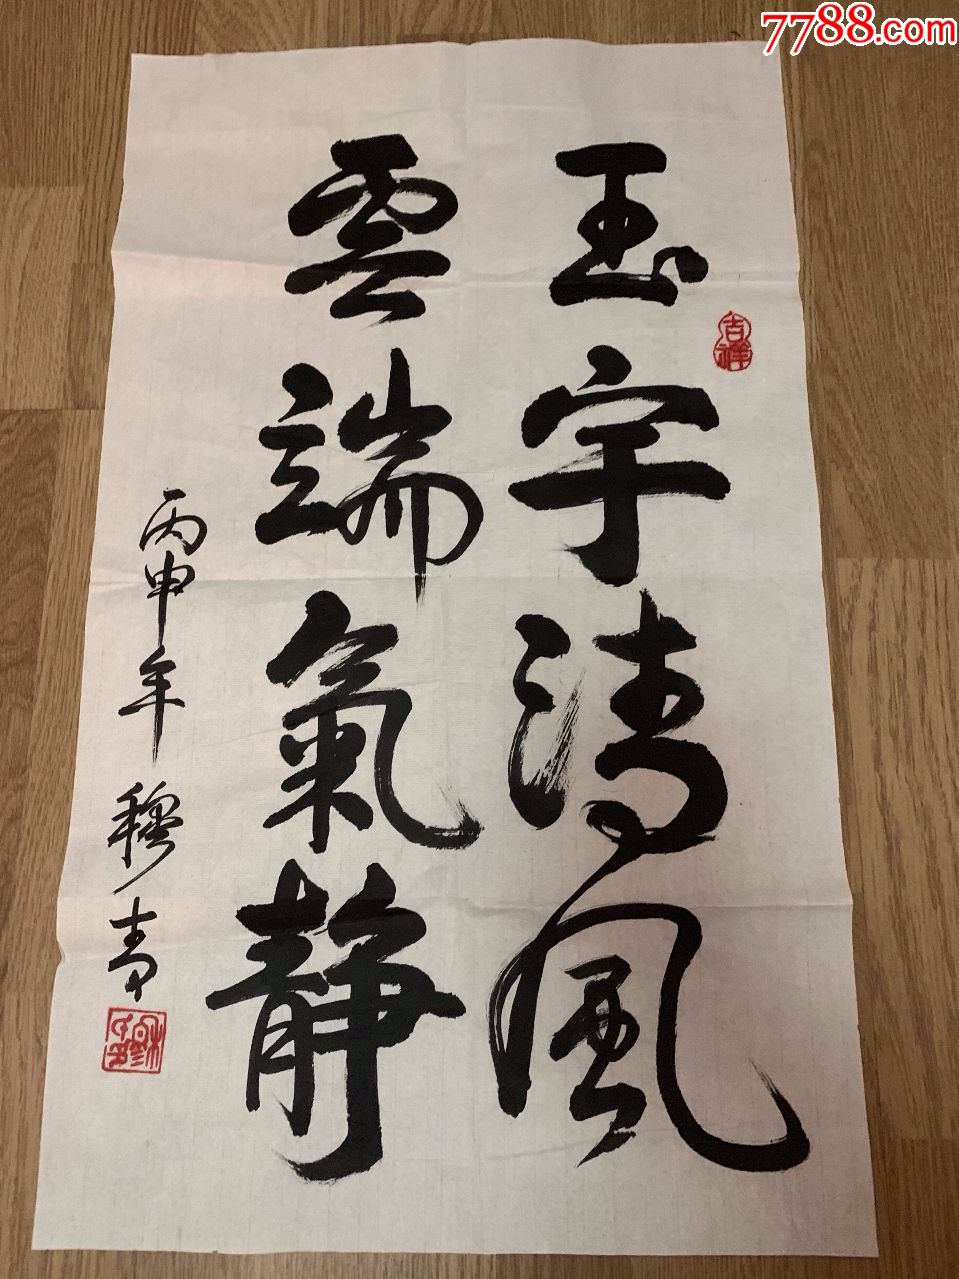 玉宇清風
雲端氣静
丙申年 穆青
吉祥
7788.com